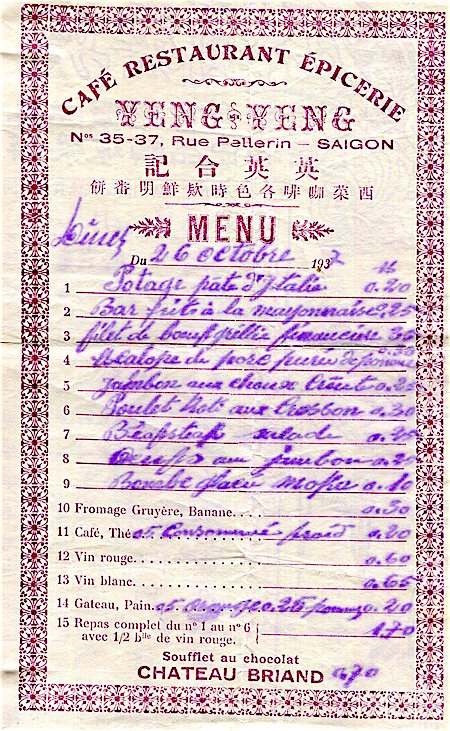 CAFÉ RESTAURANT ÉPICERIE
YENG YENG
Nos 35-37, Rue Pellerin – SAIGON
記合英英
餅番明鮮欵時色各啡咖菜西
MENU
Du 26 octobre 1937
1 Potage pate d'Italie 0.20
2 Bar frits à la mayonnaise
3 filet de bœuf financière
4 Escalope de porc purée de
5 Jambon aux choux
6 Poulet Roti aux Cresson 0.30
7 Beefsteck salade
8 au jambon
9 Bombe 0.10
10 Fromage Gruyère, Banane.... 0.30
11 Café, Thé et Consommé froid 0.20
12 Vin rouge. 0.60
13 Vin blanc. 0.65
14 Gateau, Pain. 0.20
15 Repas complet du nº 1 au nº 6
avec 1/2 blle de vin rouge. 1.70
Soufflet au chocolat
CHATEAU BRIAND 0.70